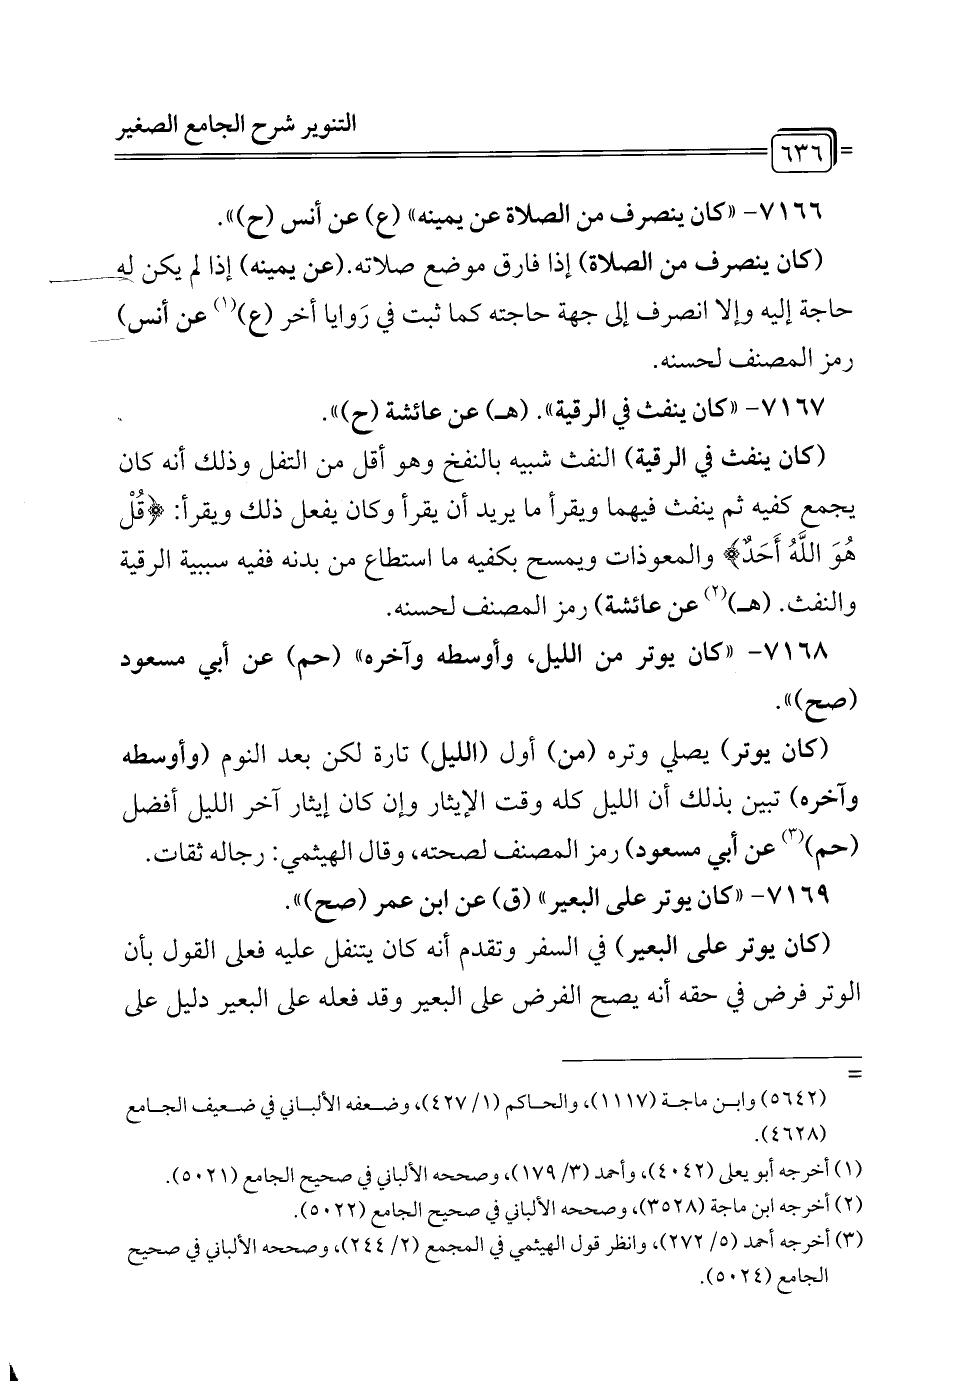 التنوير شرح الجامع الصغير
٦٣٦
٧١٦٦- «كان ينصرف من الصلاة عن يمينه» (ع) عن أنس (ح)».
(كان ينصرف من الصلاة) إذا فارق موضع صلاته.(عن يمينه) إذا لم يكن له
حاجة إليه وإلا انصرف إلى جهة حاجته كما ثبت في رَوايا أخر (ع)(١) عن أنس)
رمز المصنف لحسنه.
٧١٦٧- «كان ينفث في الرقية». (هـ) عن عائشة (ح)».
(كان ينفث في الرقية) النفث شبيه بالنفخ وهو أقل من التفل وذلك أنه كان
يجمع كفيه ثم ينفث فيهما ويقرأ ما يريد أن يقرأ وكان يفعل ذلك ويقرأ: ﴿قُلْ
هُوَ اللَّهُ أَحَدٌ﴾ والمعوذات ويمسح بكفيه ما استطاع من بدنه ففيه سببية الرقية
والنفث. (هـ)(٢) عن عائشة) رمز المصنف لحسنه.
٧١٦٨- «كان يوتر من الليل، وأوسطه وآخره» (حم) عن أبي مسعود
(صح)».
(كان يوتر) يصلي وتره (من) أول (الليل) تارة لكن بعد النوم (وأوسطه
وآخره) تبين بذلك أن الليل كله وقت الإيثار وإن كان إيثار آخر الليل أفضل
(حم)(٣) عن أبي مسعود) رمز المصنف لصحته، وقال الهيثمي: رجاله ثقات.
٧١٦٩- «كان يوتر على البعير» (ق) عن ابن عمر (صح)».
(كان يوتر على البعير) في السفر وتقدم أنه كان يتنفل عليه فعلى القول بأن
الوتر فرض في حقه أنه يصح الفرض على البعير وقد فعله على البعير دليل على
=
(٥٦٤٢) وابن ماجة (١١١٧)، والحاكم (١/ ٤٢٧)، وضعفه الألباني في ضعيف الجامع
(٤٦٢٨).
(١) أخرجه أبو يعلى (٤٠٤٢)، وأحمد (٣/ ١٧٩)، وصححه الألباني في صحيح الجامع (٥٠٢١).
(٢) أخرجه ابن ماجة (٣٥٢٨)، وصححه الألباني في صحيح الجامع (٥٠٢٢).
(٣) أخرجه أحمد (٥/ ٢٧٢)، وانظر قول الهيثمي في المجمع (٢/ ٢٤٤)، وصححه الألباني في صحيح
الجامع (٥٠٢٤).